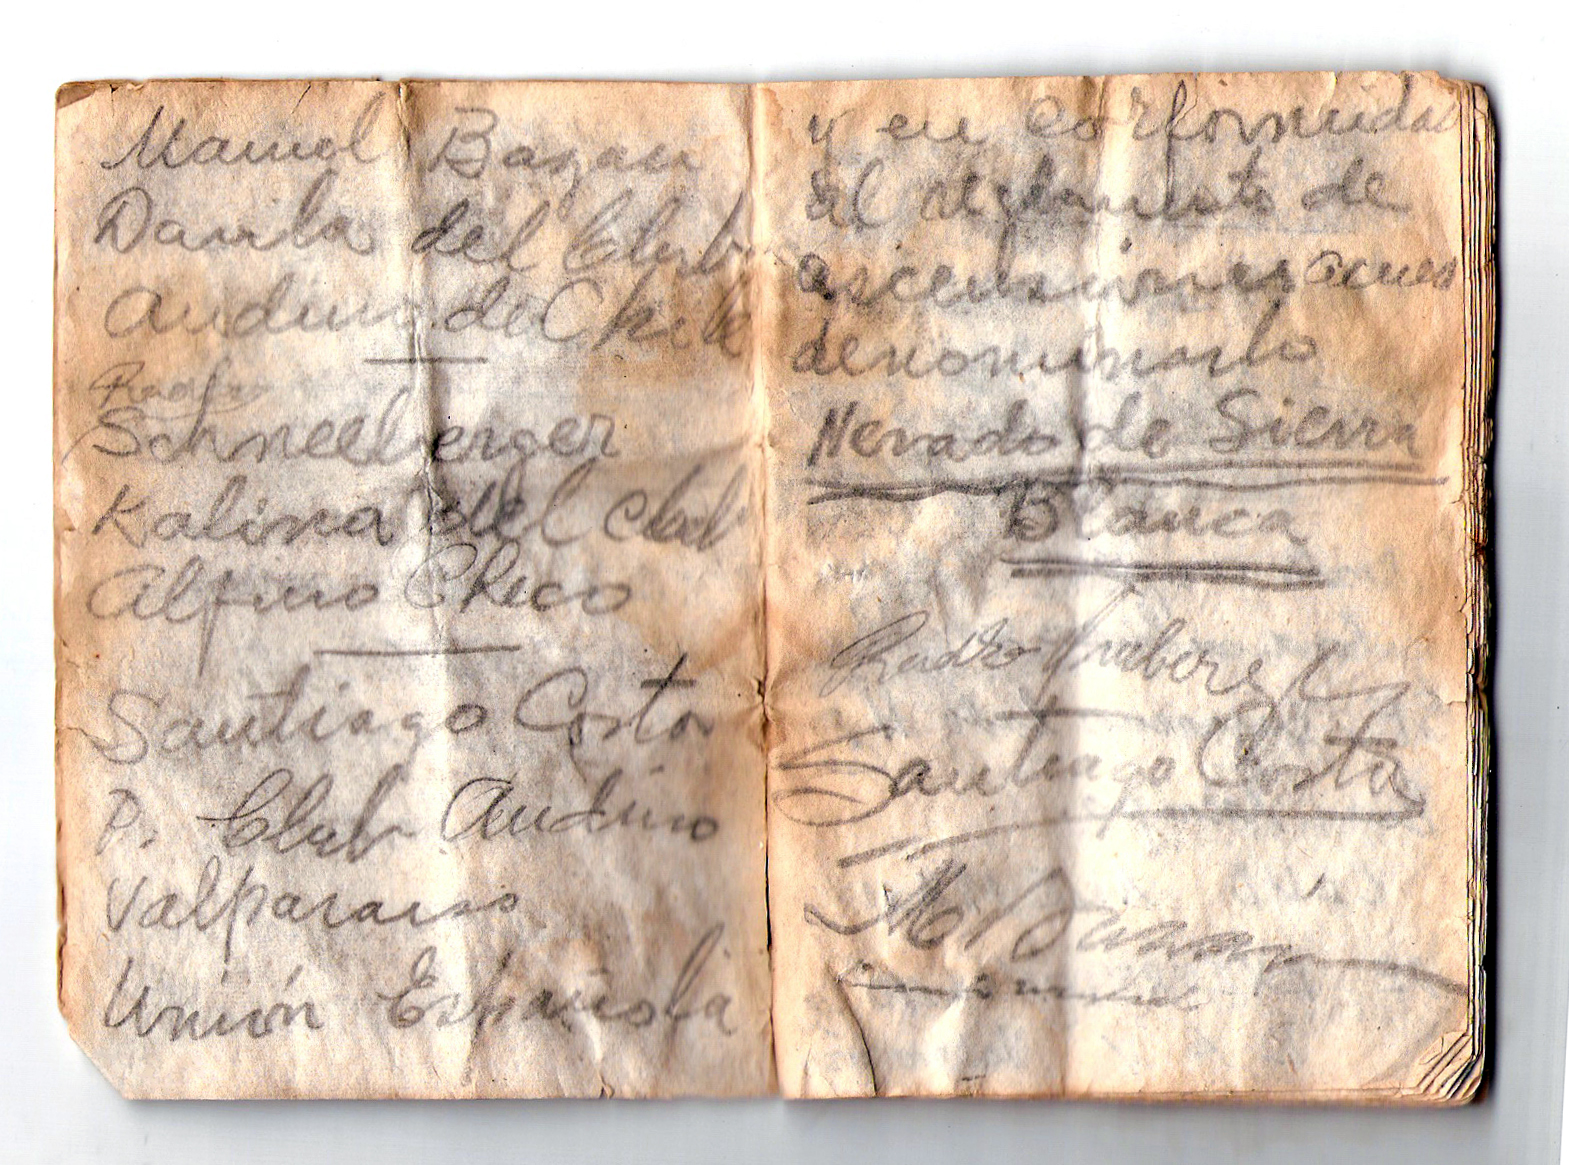 Manuel Bazan
Davila del Club
Andino de Chile
Schneeberger
Kalina del Club
Alpino Chico
Santiago Costa
P. Club Andino
Valparaiso
Unión Española
y en conformidad
al reglamento de
ascensiones
denominarlo
Nevado de Sierra
Blanca
Santiago Costa